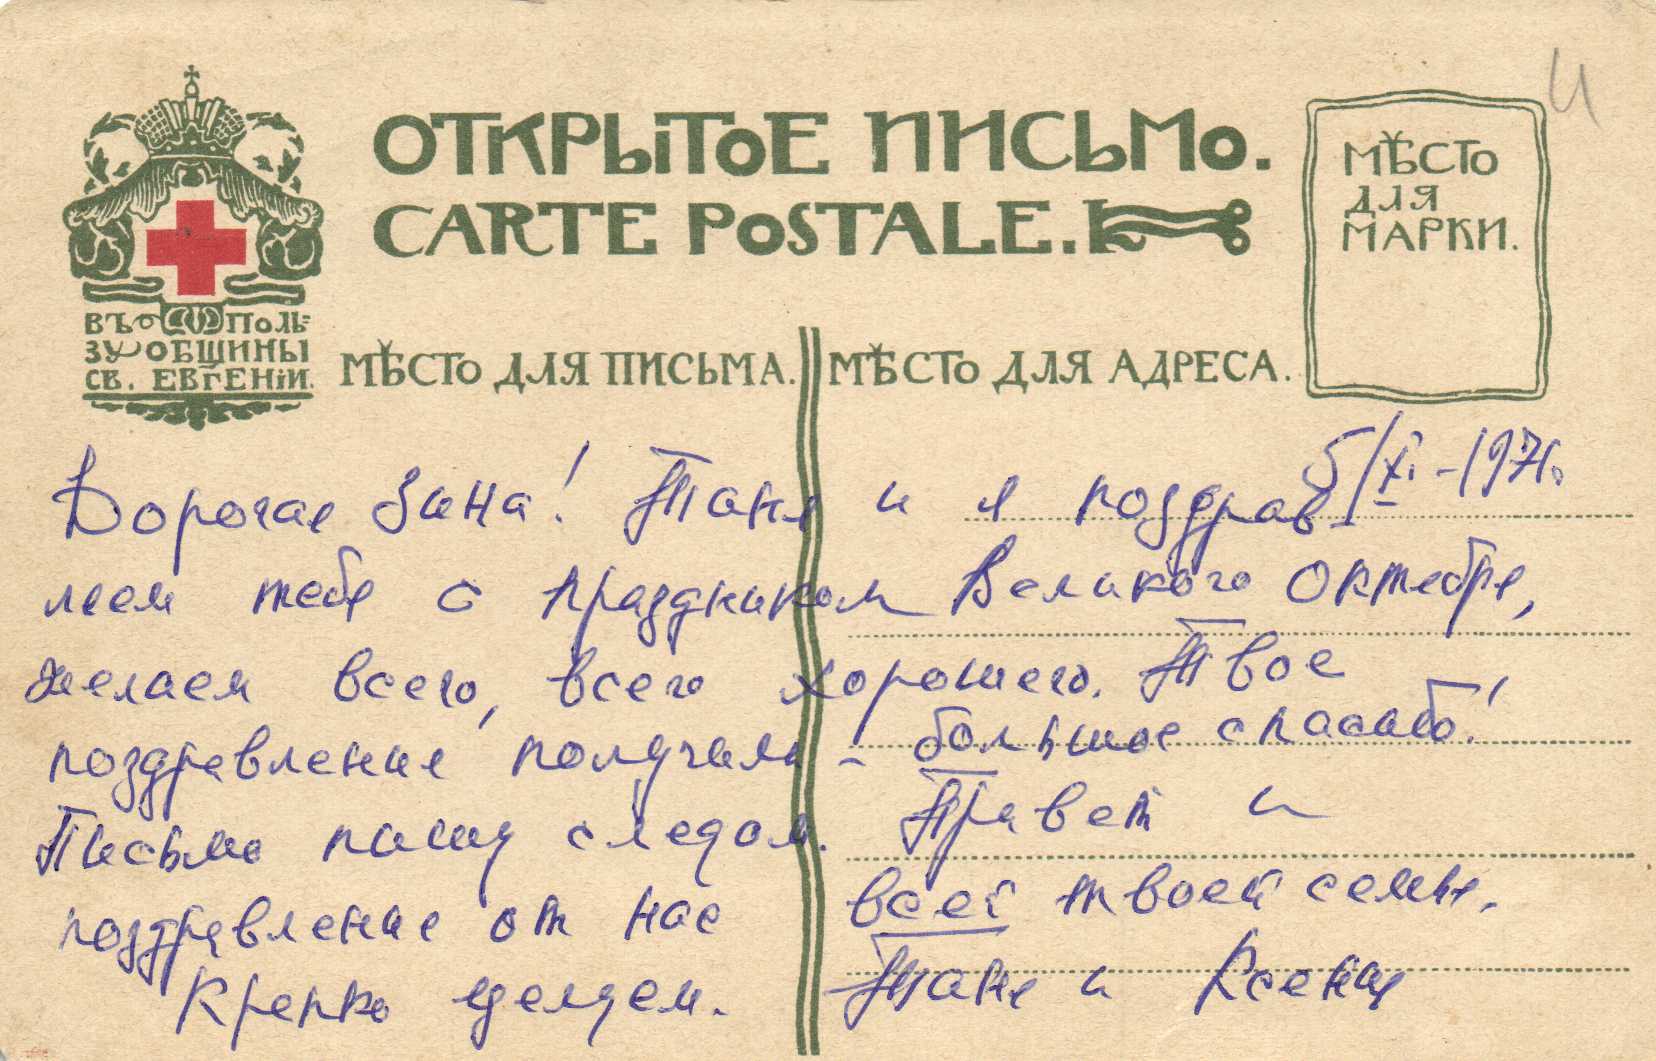 ОТКРЫТОЕ ПИСЬМО.
CARTE POSTALE.
МѢСТО
ДЛЯ
МАРКИ.
ВЪ ПОЛЬ=
ЗУ ОБЩИНЫ
СВ. ЕВГЕНІИ.
МѢСТО ДЛЯ ПИСЬМА.
МѢСТО ДЛЯ АДРЕСА.
5/XI-1971г.
Дорогая Зина! Таня и я поздрав
ляем тебя с праздником Великого Октября,
желаем всего, всего хорошего. Твое
поздравление получили - большое спасибо!
Письмо пишу следом. Привет и
поздравление от нас всей твоей семье.
Крепко целуем. Таня и Ксения